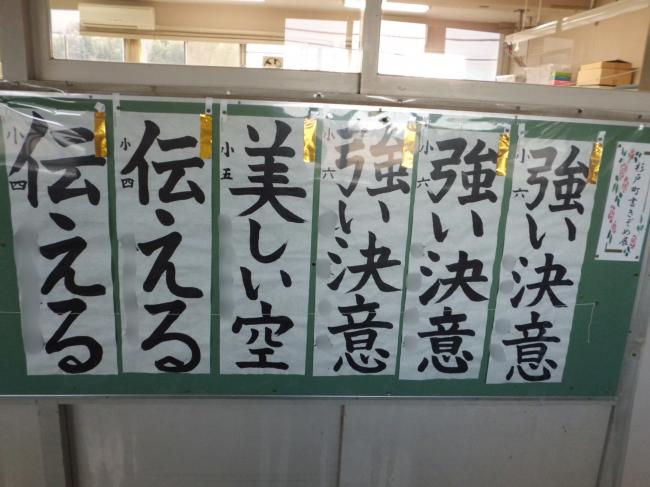 杉戸町書きぞめ展
小六
強い決意
小六
強い決意
小六
強い決意
小五
美しい空
小四
伝える
小四
伝える